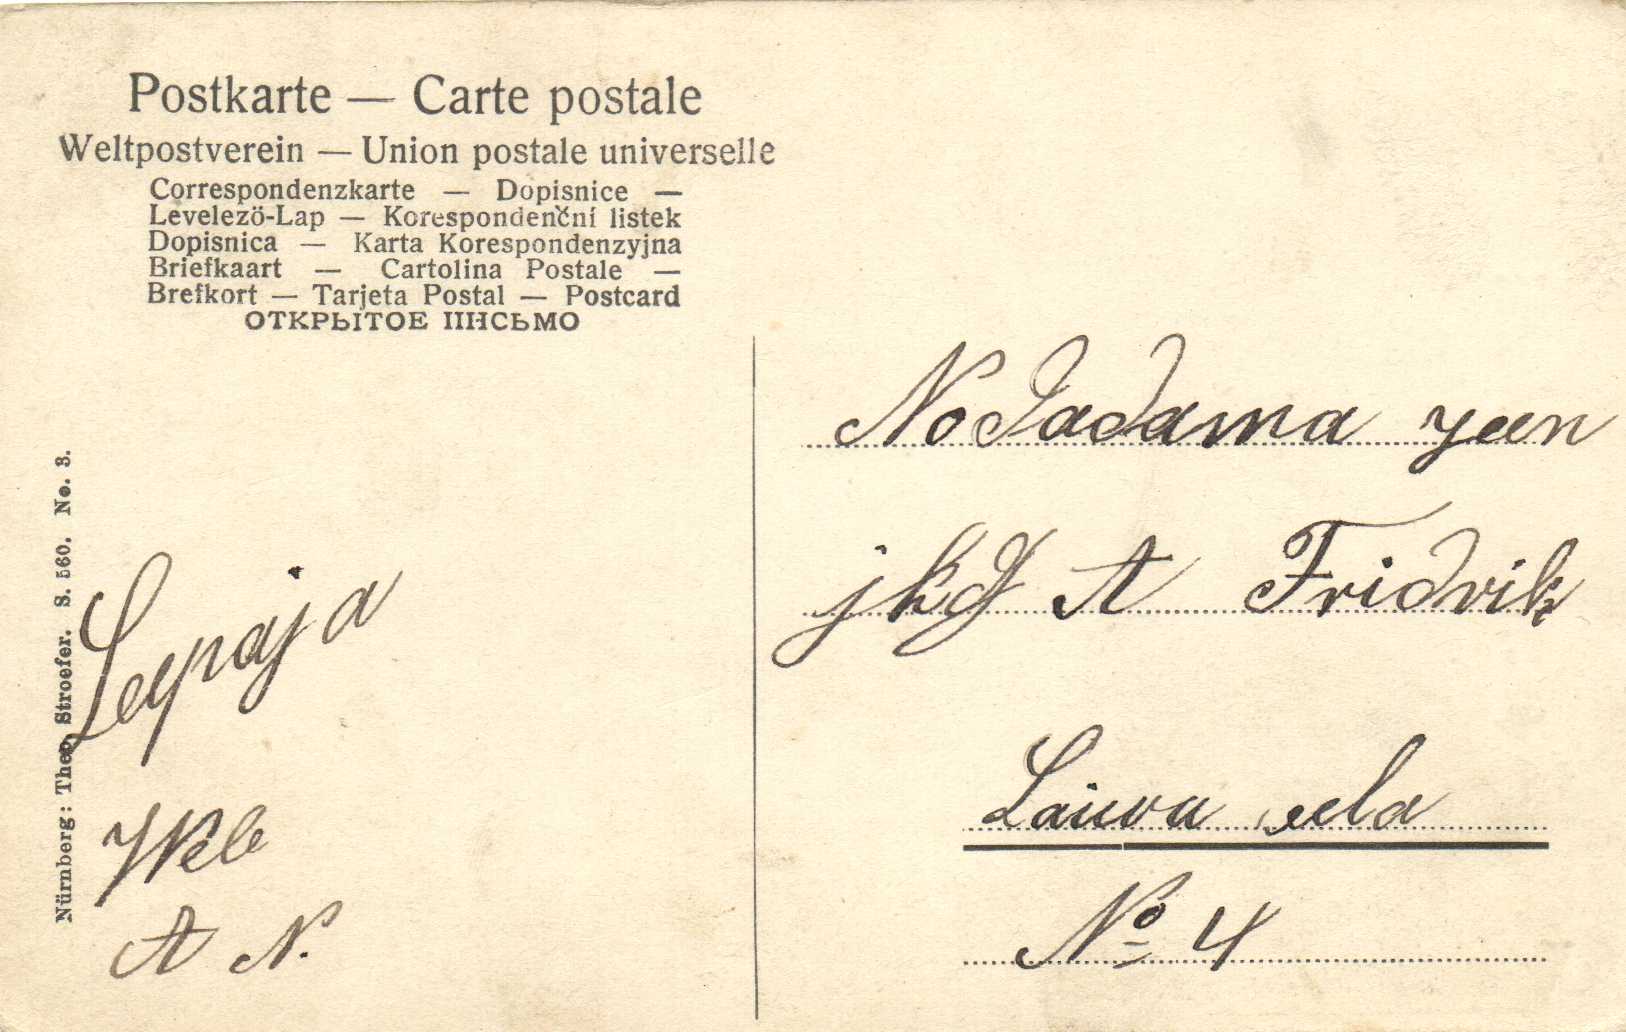 Postkarte — Carte postale
Weltpostverein — Union postale universelle
Correspondenzkarte — Dopisnice —
Levelező-Lap — Korespondenční listek
Dopisnica — Karta Korespondenzyjna
Briefkaart — Cartolina Postale —
Brefkort — Tarjeta Postal — Postcard
ОТКРЫТОЕ ПИСЬМО
Nürnberg: Theo. Stroefer. S. 560. No. 3.
Leepaja
A N.
No Dadama
A Fridrik
Laiwu eela
No 4